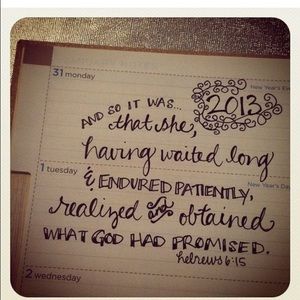 31 monday
New Year's Eve
AND SO IT WAS...
2013
that she,
having waited long
1 tuesday
New Year's Day
& ENDURED PATIENTLY,
realized & obtained
WHAT GOD HAD PROMISED.
hebrews 6:15
2 wednesday